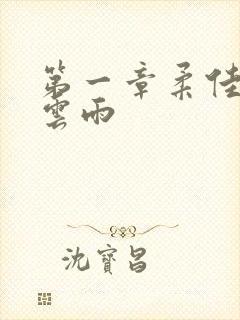 第一章柔佳
雲雨
沈寶昌